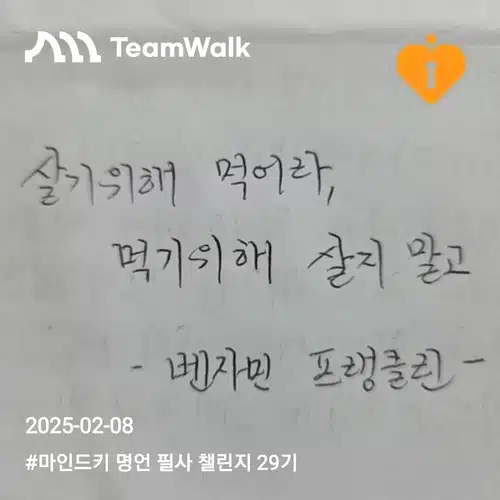 TeamWalk
살기위해 먹어라,
먹기위해 살지 말고
- 벤자민 프랭클린 -
2025-02-08
#마인드키 명언 필사 챌린지 29기